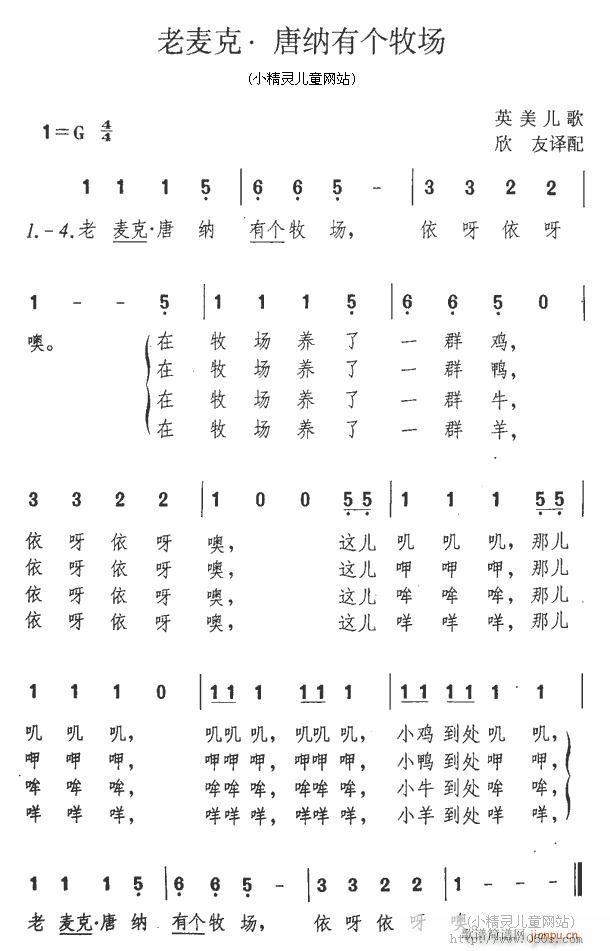 老麦克·唐纳有个牧场
(小精灵儿童网站)
1=G 4/4
英美儿歌
欣 友译配
1 1 1 5 | 6 6 5 - | 3 3 2 2 |
1.-4.老 麦克·唐 纳 有个牧 场, 依 呀 依 呀
1 - - 5 | 1 1 1 5 | 6 6 5 0 |
噢。 在 牧 场 养 了 一 群 鸡,
在 牧 场 养 了 一 群 鸭,
在 牧 场 养 了 一 群 牛,
在 牧 场 养 了 一 群 羊,
3 3 2 2 | 1 0 0 5 5 | 1 1 1 5 5 |
依 呀 依 呀 噢, 这儿 叽 叽 叽, 那儿
依 呀 依 呀 噢, 这儿 呷 呷 呷, 那儿
依 呀 依 呀 噢, 这儿 哞 哞 哞, 那儿
依 呀 依 呀 噢, 这儿 咩 咩 咩, 那儿
1 1 1 0 | 1 1 1 1 1 1 | 1 1 1 1 1 1 |
叽 叽 叽, 叽叽 叽, 叽叽 叽, 小鸡 到处 叽 叽,
呷 呷 呷, 呷呷 呷, 呷呷 呷, 小鸭 到处 呷 呷,
哞 哞 哞, 哞哞 哞, 哞哞 哞, 小牛 到处 哞 哞,
咩 咩 咩, 咩咩 咩, 咩咩 咩, 小羊 到处 咩 咩,
1 1 1 5 | 6 6 5 - | 3 3 2 2 | 1 - - - ‖
老 麦克·唐 纳 有个牧 场, 依 呀 依 呀 噢
(小精灵儿童网站)
歌谱简谱网 jianpu.cn